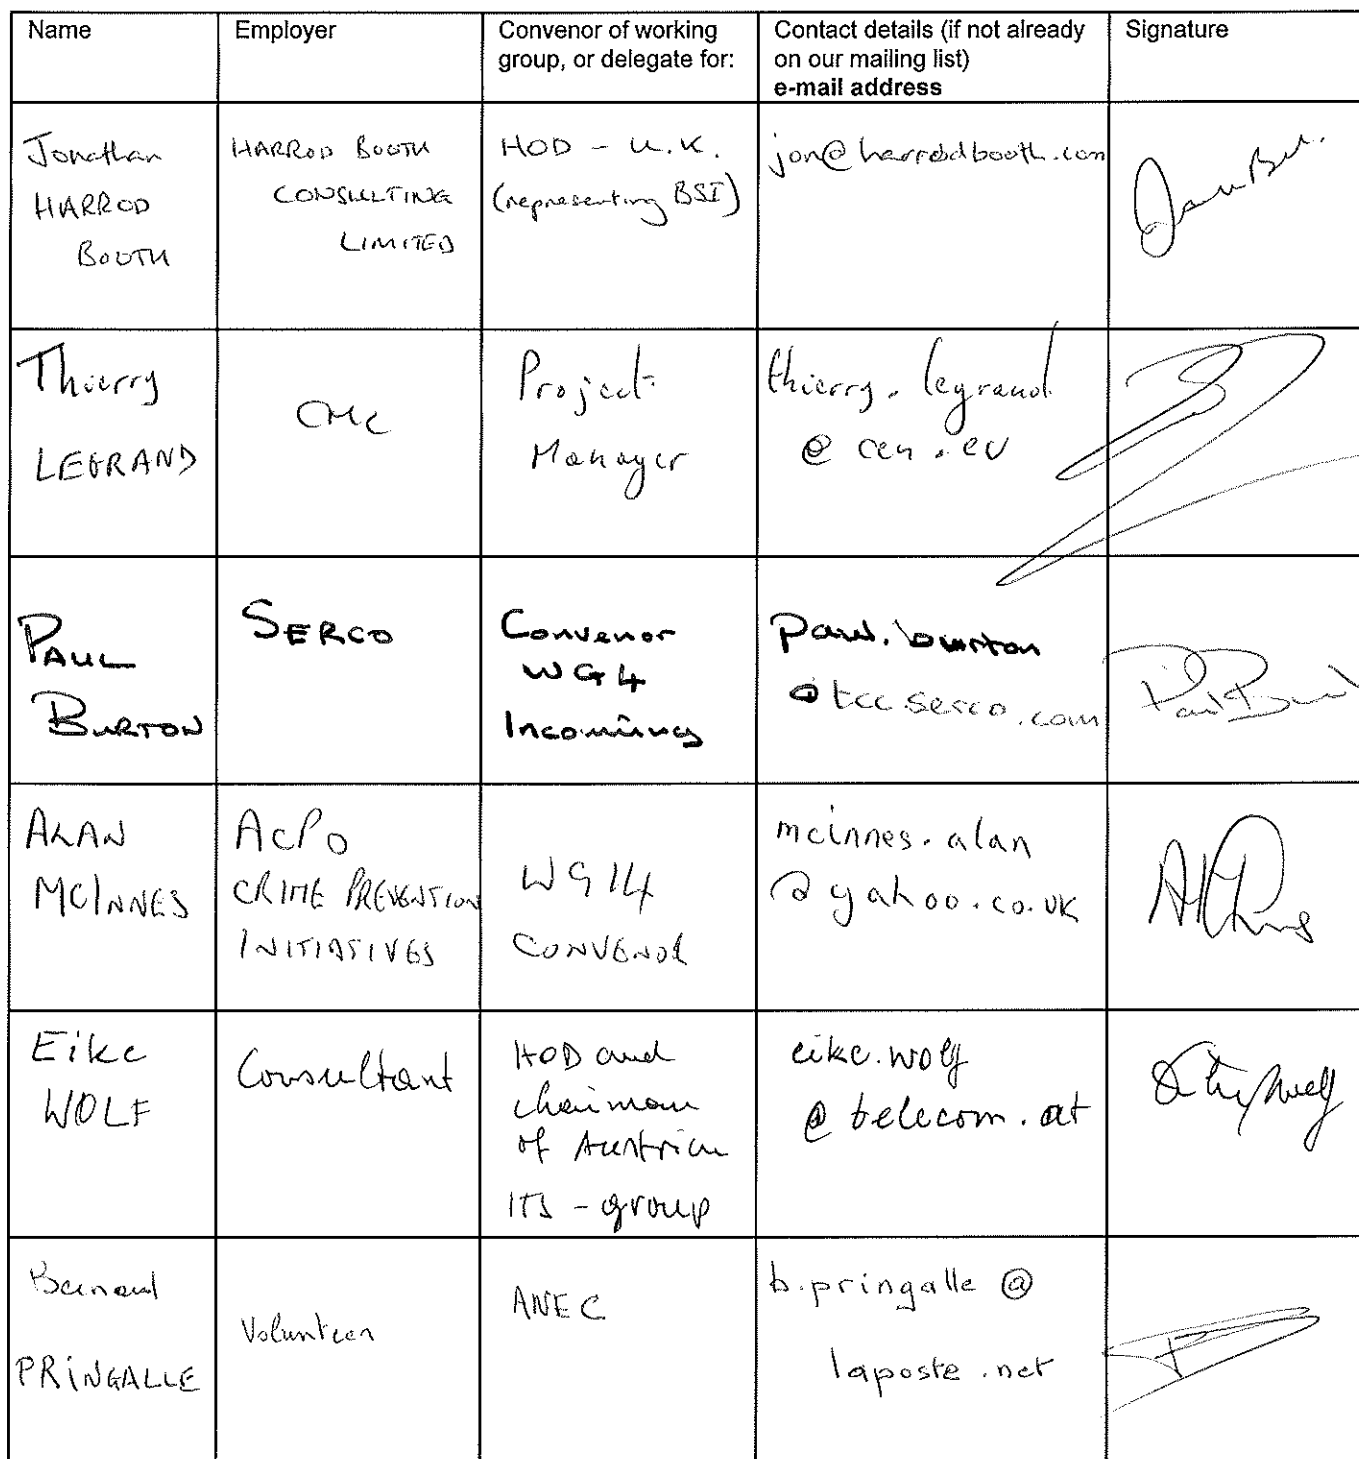 Name
Employer
Convenor of working
group, or delegate for:
Contact details (if not already
on our mailing list)
e-mail address
Signature
Jonathan
HARROD
BOOTH
HARROD BOOTH
CONSULTING
LIMITED
HOD - U.K.
(representing BSI)
jon@harrodbooth.com
Thierry
LEGRAND
CMC
Project
Manager
thierry.legrand
@cen.eu
PAUL
BURTON
SERCO
Convenor
WG4
Incoming
paul.burton
@tcc.serco.com
ALAN
MCINNES
ACPO
CRIME PREVENTION
INITIATIVES
WG14
CONVENOR
mcinnes.alan
@yahoo.co.uk
Eike
WOLF
Consultant
HOD and
chairman
of Austrian
ITS-group
eike.wolf
@telecom.at
Bernard
PRINGALLE
Volunteer
ANEC
b.pringalle@
laposte.net